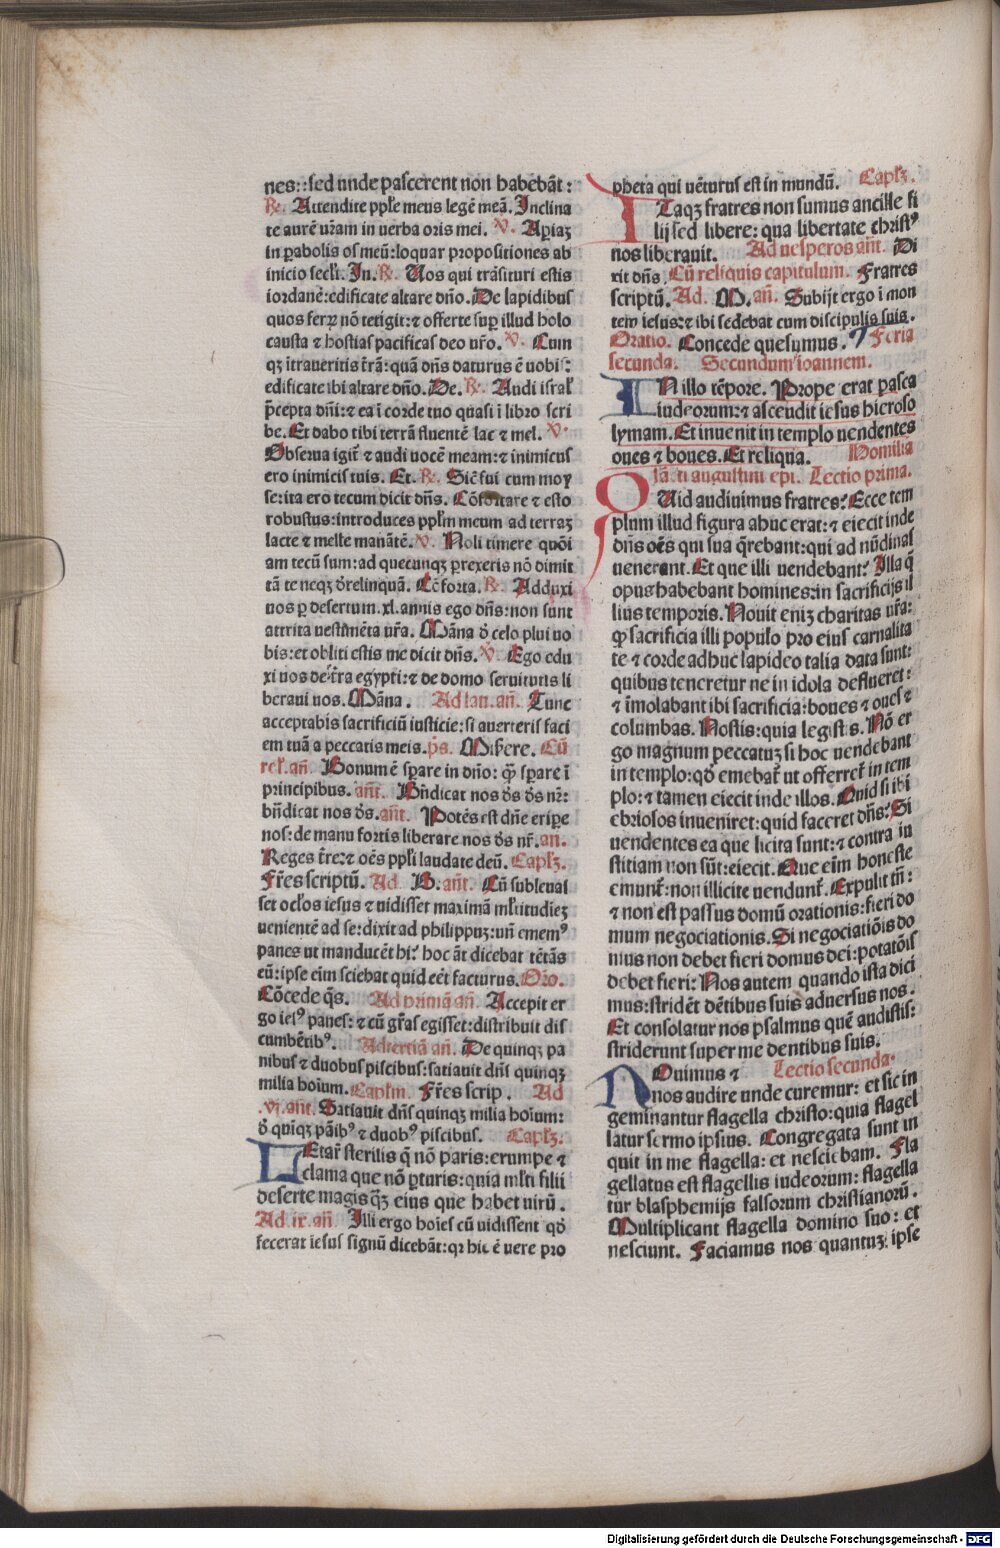 nes: sed unde pascerent non habebāt:
℞. Attendite pp̄le meus legē meā. Inclina
te aurē ur̄am in uerba oris mei. ℣. Aꝑiaꝫ
in ꝑabolis os meū: loquar propositiones ab
inicio secl̄i. In. ℞. Uos qui trāsituri estis
iordanē: edificate altare dn̄o. De lapidibus
quos ferꝝ nō tetigit: ⁊ offerte suꝑ illud holo
causta ⁊ hostias pacificas deo ur̄o. ℣. Cum
qꝫ ītraueritis tr̄ā: quā dn̄s daturus ē uobis:
edificate ibi altare dn̄o. De. ℞. Audi isral̄
p̄cepta dn̄i: ⁊ ea ī corde tuo quasi ī libro scri
be. Et dabo tibi terrā fluentē lac ⁊ mel. ℣.
Obserua igit̄ ⁊ audi uocē meam: ⁊ inimicus
ero inimicis tuis. Et. ℞. Sic̄ fui cum moy
se: ita ero tecum dicit dn̄s. Cōfortare ⁊ esto
robustus: introduces ppl̄m meum ad terraꝫ
lacte ⁊ melle manātē. ℣. Noli timere quōi
am tecū sum: ad quecunqꝫ ꝑrexeris nō dimit
tā te neqꝫ d̄relinquā. Cōforta. ℞. Adduxi
uos ꝑ desertum .xl. annis ego dn̄s: non sunt
attrita uestimēta ur̄a. Māna d̄ celo plui uo
bis: et obliti estis me dicit dn̄s. ℣. Ego edu
xi uos de tr̄ra egypti: ⁊ de domo seruitutis li
beraui uos. Māna. Ad lau. an̄. Tunc
acceptabis sacrificiū iusticie: si auerteris faci
em tuā a peccatis meis. p̄s. Misere. Cū
rel̄. an̄. Bonum ē sꝑare in dn̄o: qꝫ̄ sꝑare ī
principibus. an̄t. Bn̄dicat nos d̄s d̄s nr̄:
bn̄dicat nos d̄s. an̄t. Potēs est dn̄e eriꝑe
nos: de manu fortis liberare nos d̄s nr̄. an.
Reges tr̄e: ⁊ oēs ppl̄i laudate deū. Capl̄ꝫ.
Fr̄es scriptū. Ad B. an̄t. Cū subleuas
set ocl̄os iesus ⁊ uidisset maximā ml̄titudiēꝫ
uenientē ad se: dixit ad philippuꝫ: un̄ ememꝰ
panes ut manducēt hi? hoc āt dicebat tētās
eū: ipse eīm sciebat quid eēt facturus. Oro.
Cōcede qs̄. Ad primā an̄. Accepit er
go iesꝰ panes: ⁊ cū gr̄as egisset: distribuit dis
cumbētibꝰ. Ad tertiā an̄. De quinqꝫ pa
nibus ⁊ duobus piscibus: satiauit dn̄s quinqꝫ
milia hoīum. Capl̄m. Fr̄es scrip. Ad
.vj. an̄t. Satiauit dn̄s quinqꝫ milia hoīum:
d̄ quīqꝫ pāibꝰ ⁊ duobꝰ piscibus. Capl̄ꝫ.
LEtar̄ sterilis q̄ nō paris: erumpe ⁊
clama que nō ꝑturis: quia ml̄ti filii
deserte magis qꝫ̄ eius que habet uirū.
Ad .ix. an̄. Illi ergo hoīes cū uidissent qd̄
fecerat iesus signū dicebāt: qꝛ hic ē uere pro
pheta qui uēturus est in mundū. Capl̄ꝫ.
ITaqꝫ fratres non sumus ancille fi
lij sed libere: qua libertate christꝰ
nos liberauit. Ad uesperos an̄t. Di
xit dn̄s. Cū reliquis capitulum. Fratres
scriptū. Ad. M. an̄. Subijt ergo ī mon
tem iesus: ⁊ ibi sedebat cum discipulis suis.
Oratio. Concede quesumus. Feria
secunda. Secundum ioannem.
IN illo tēpore. Prope erat pasca
iudeorum: ⁊ ascendit iesus hieroso
lymam. Et inuenit in templo uendentes
oues ⁊ boues. Et reliqua. Homilia
sā.ti augustini epi. Lectio prima.
QUid audiuimus fratres? Ecce tem
plum illud figura ahuc erat: ⁊ eiecit inde
dn̄s oēs qui sua q̄rebant: qui ad nūdinas
uenerant. Et que illi uendebant? Illa q̄
opus habebant homines: in sacrificijs il
lius temporis. Nouit eniꝫ charitas ur̄a:
qꝫ sacrificia illi populo pro eius carnalita
te ⁊ corde adhuc lapideo talia data sunt:
quibus teneretur ne in idola deflueret:
⁊ īmolabant ibi sacrificia: boues ⁊ oues ⁊
columbas. Nostis: quia legistis. Nō er
go magnum peccatuꝫ si hoc uendebant
in templo: qd̄ emebat̄ ut offerret̄ in tem
plo: ⁊ tamen eiecit inde illos. Quid si ibi
ebriosos inueniret: quid faceret dn̄s? Si
uendentes ea que licita sunt: ⁊ contra iu
stitiam non sūt: eiecit. Que eīm honeste
emunt̄: non illicite uendunt̄. Expulit tn̄:
⁊ non est passus domū orationis: fieri do
mum negociationis. Si negociatiōis do
mus non debet fieri domus dei: potatōis
debet fieri? Nos autem quando ista dici
mus: stridēt dētibus suis aduersus nos.
Et consolatur nos psalmus quē audistis:
striderunt super me dentibus suis.
NOuimus ⁊ Lectio secunda.
nos audire unde curemur: et sic in
geminantur flagella christo: quia flagel
latur sermo ipsius. Congregata sunt in
quit in me flagella: et nesciebam. Fla
gellatus est flagellis iudeorum: flagella
tur blasphemijs falsorum christianorū.
Multiplicant flagella domino suo: et
nesciunt. Faciamus nos quantuꝫ ipse
Digitalisierung gefördert durch die Deutsche Forschungsgemeinschaft - DFG